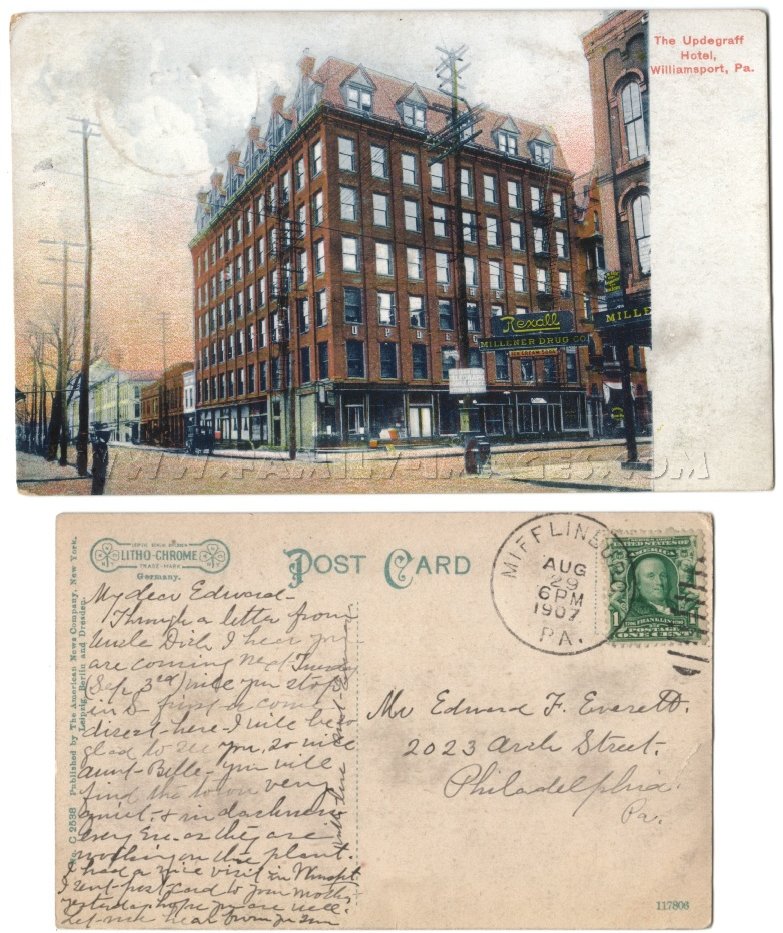 The Updegraff
Hotel,
Williamsport, Pa.
Rexall
MILLENER DRUG CO.
ICE CREAM SODA
MILLE
WWW.FAMILY-IMAGES.COM
LITHO-CHROME
TRADE-MARK
Germany.
POST CARD
MIFFLINBURG
AUG
29
6PM
1907
PA.
UNITED STATES OF
AMERICA
1
1
FRANKLIN
POSTAGE
ONE CENT
No. C 2538 Published by The American News Company, New York.
Leipzig, Berlin and Dresden.
My dear Edward-
Through a letter from
Uncle Dick I hear you
are coming next Tuesday
(Sep 3rd) will you stop
in & first or come
direct-here-I will be so
glad to see you, so will
Aunt-Belle-you will
find the town very
quiet. & in darkness
every Eve. as they are
working on the plant.
I had a nice visit in Wmspt.
I sent post card to your mother
yesterday hope you are well.
Let-me hear from you
Mr Edward F. Everett.
2023 Arch Street.
Philadelphia.
Pa.
117806